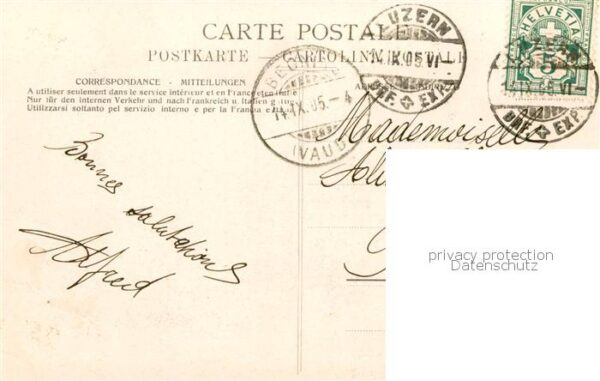 CARTE POSTALE
POSTKARTE — CARTOLINA POSTALE
CORRESPONDANCE - MITTEILUNGEN
A utiliser seulement dans le service intérieur et en France et en Italie
Nur für den internen Verkehr und nach Frankreich u. Italien
Utilizzarsi soltanto pel servizio interno e per la Francia e
LUZERN
IX.05.VI
BRF. EXP.
HELVETIA
5
BRF. EXP.
14.IX.05. 4
(VAUD)
Mademoiselle
Bonnes salutations
Alfred
privacy protection
Datenschutz